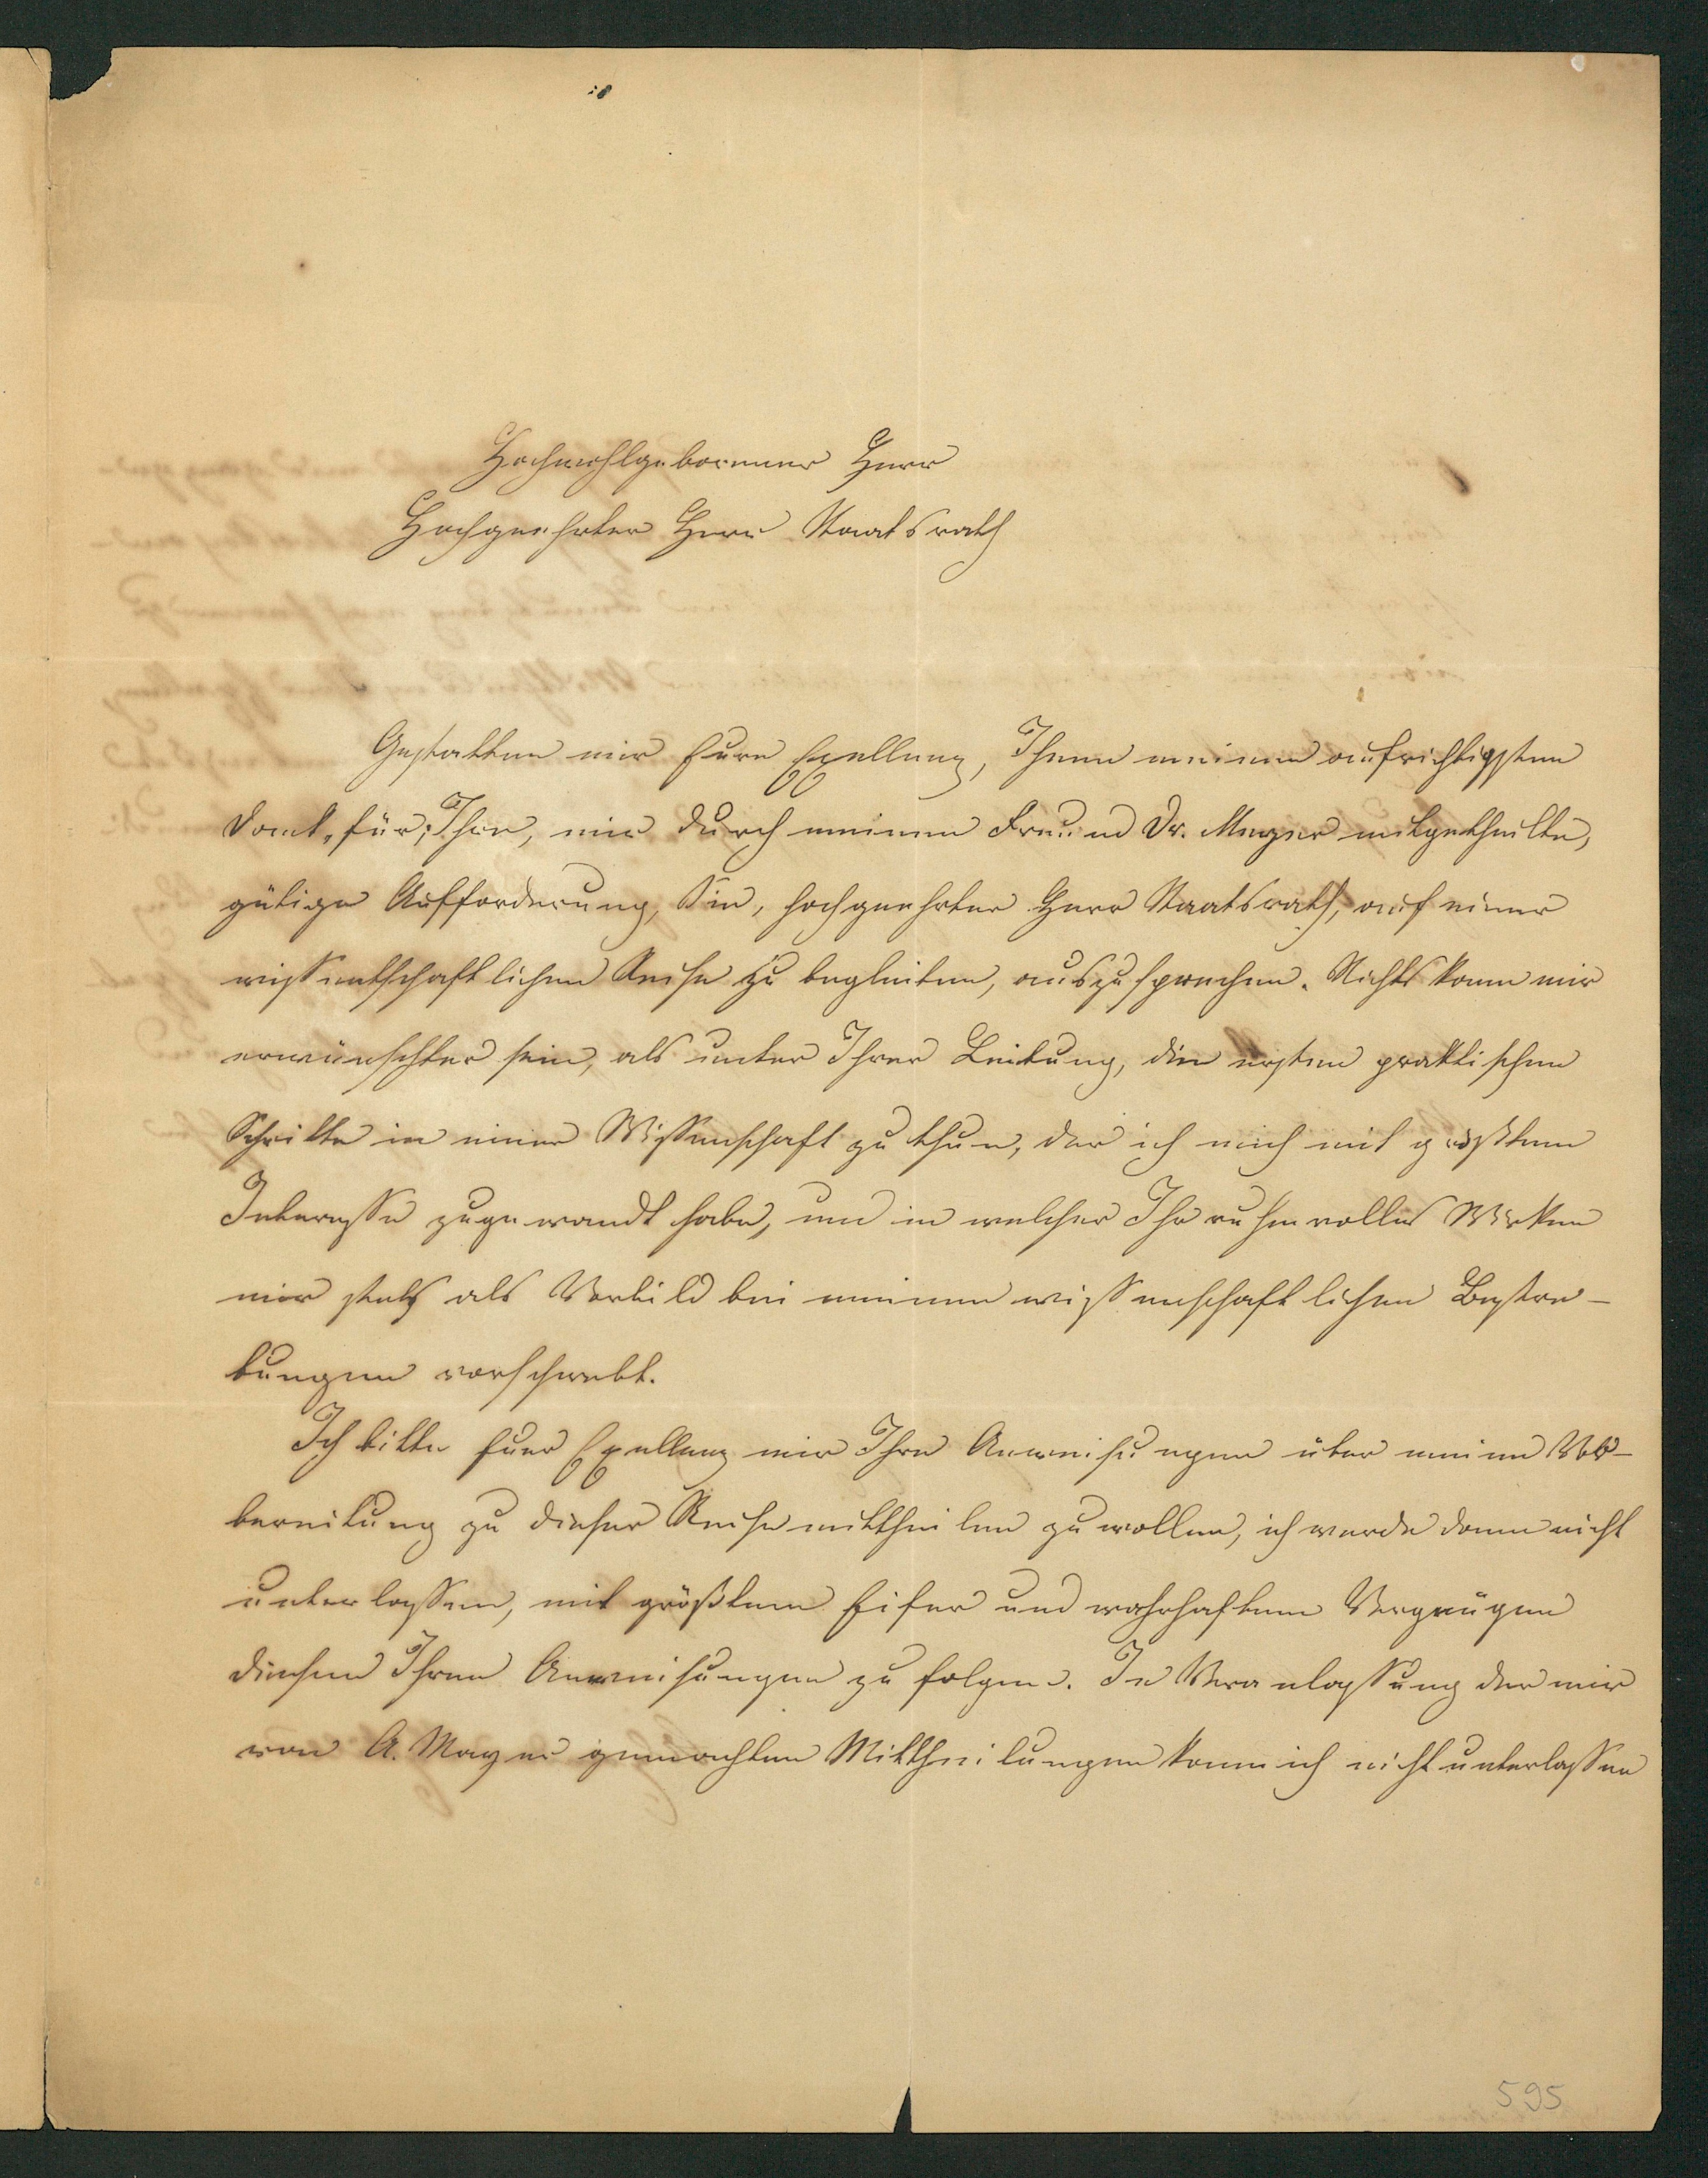 Hochwohlgeborener Herr
Hochgeehrter Herr Staatsrath
Gestatten mir Eure Exellenz, Ihnen meinen aufrichtigsten
Dank, für Ihre, mir durch meinen Freund Dr. Meyer mitgetheilte,
gütige Aufforderung, Sie, hochgeehrter Herr Staatsrath, auf einer
wissentschaftlichen Reise zu begleiten, auszusprechen. Nichts kann mir
erwünschter sein, als unter Ihrer Leitung, die ersten praktischen
Schritte in einer Wissenschaft zu thun, der ich mich mit größtem
Interesse zugewandt habe, und in welcher Ihr ruhmvolles Wirken
mir stets als Vorbild bei meinen wissenschaftlichen Bestre-
bungen vorschwebt.
Ich bitte Euer Exellenz mir Ihre Anweisungen über meine Vor-
bereitung zu dieser Reise mittheilen zu wollen, ich werde dann nicht
unterlassen, mit größtem Eifer und wahrhaftem Vergnügen
diesen Ihren Anweisungen zu folgen. In Veranlassung der mir
von A. Meyer gemachten Mittheilungen kann ich nicht unterlassen
595